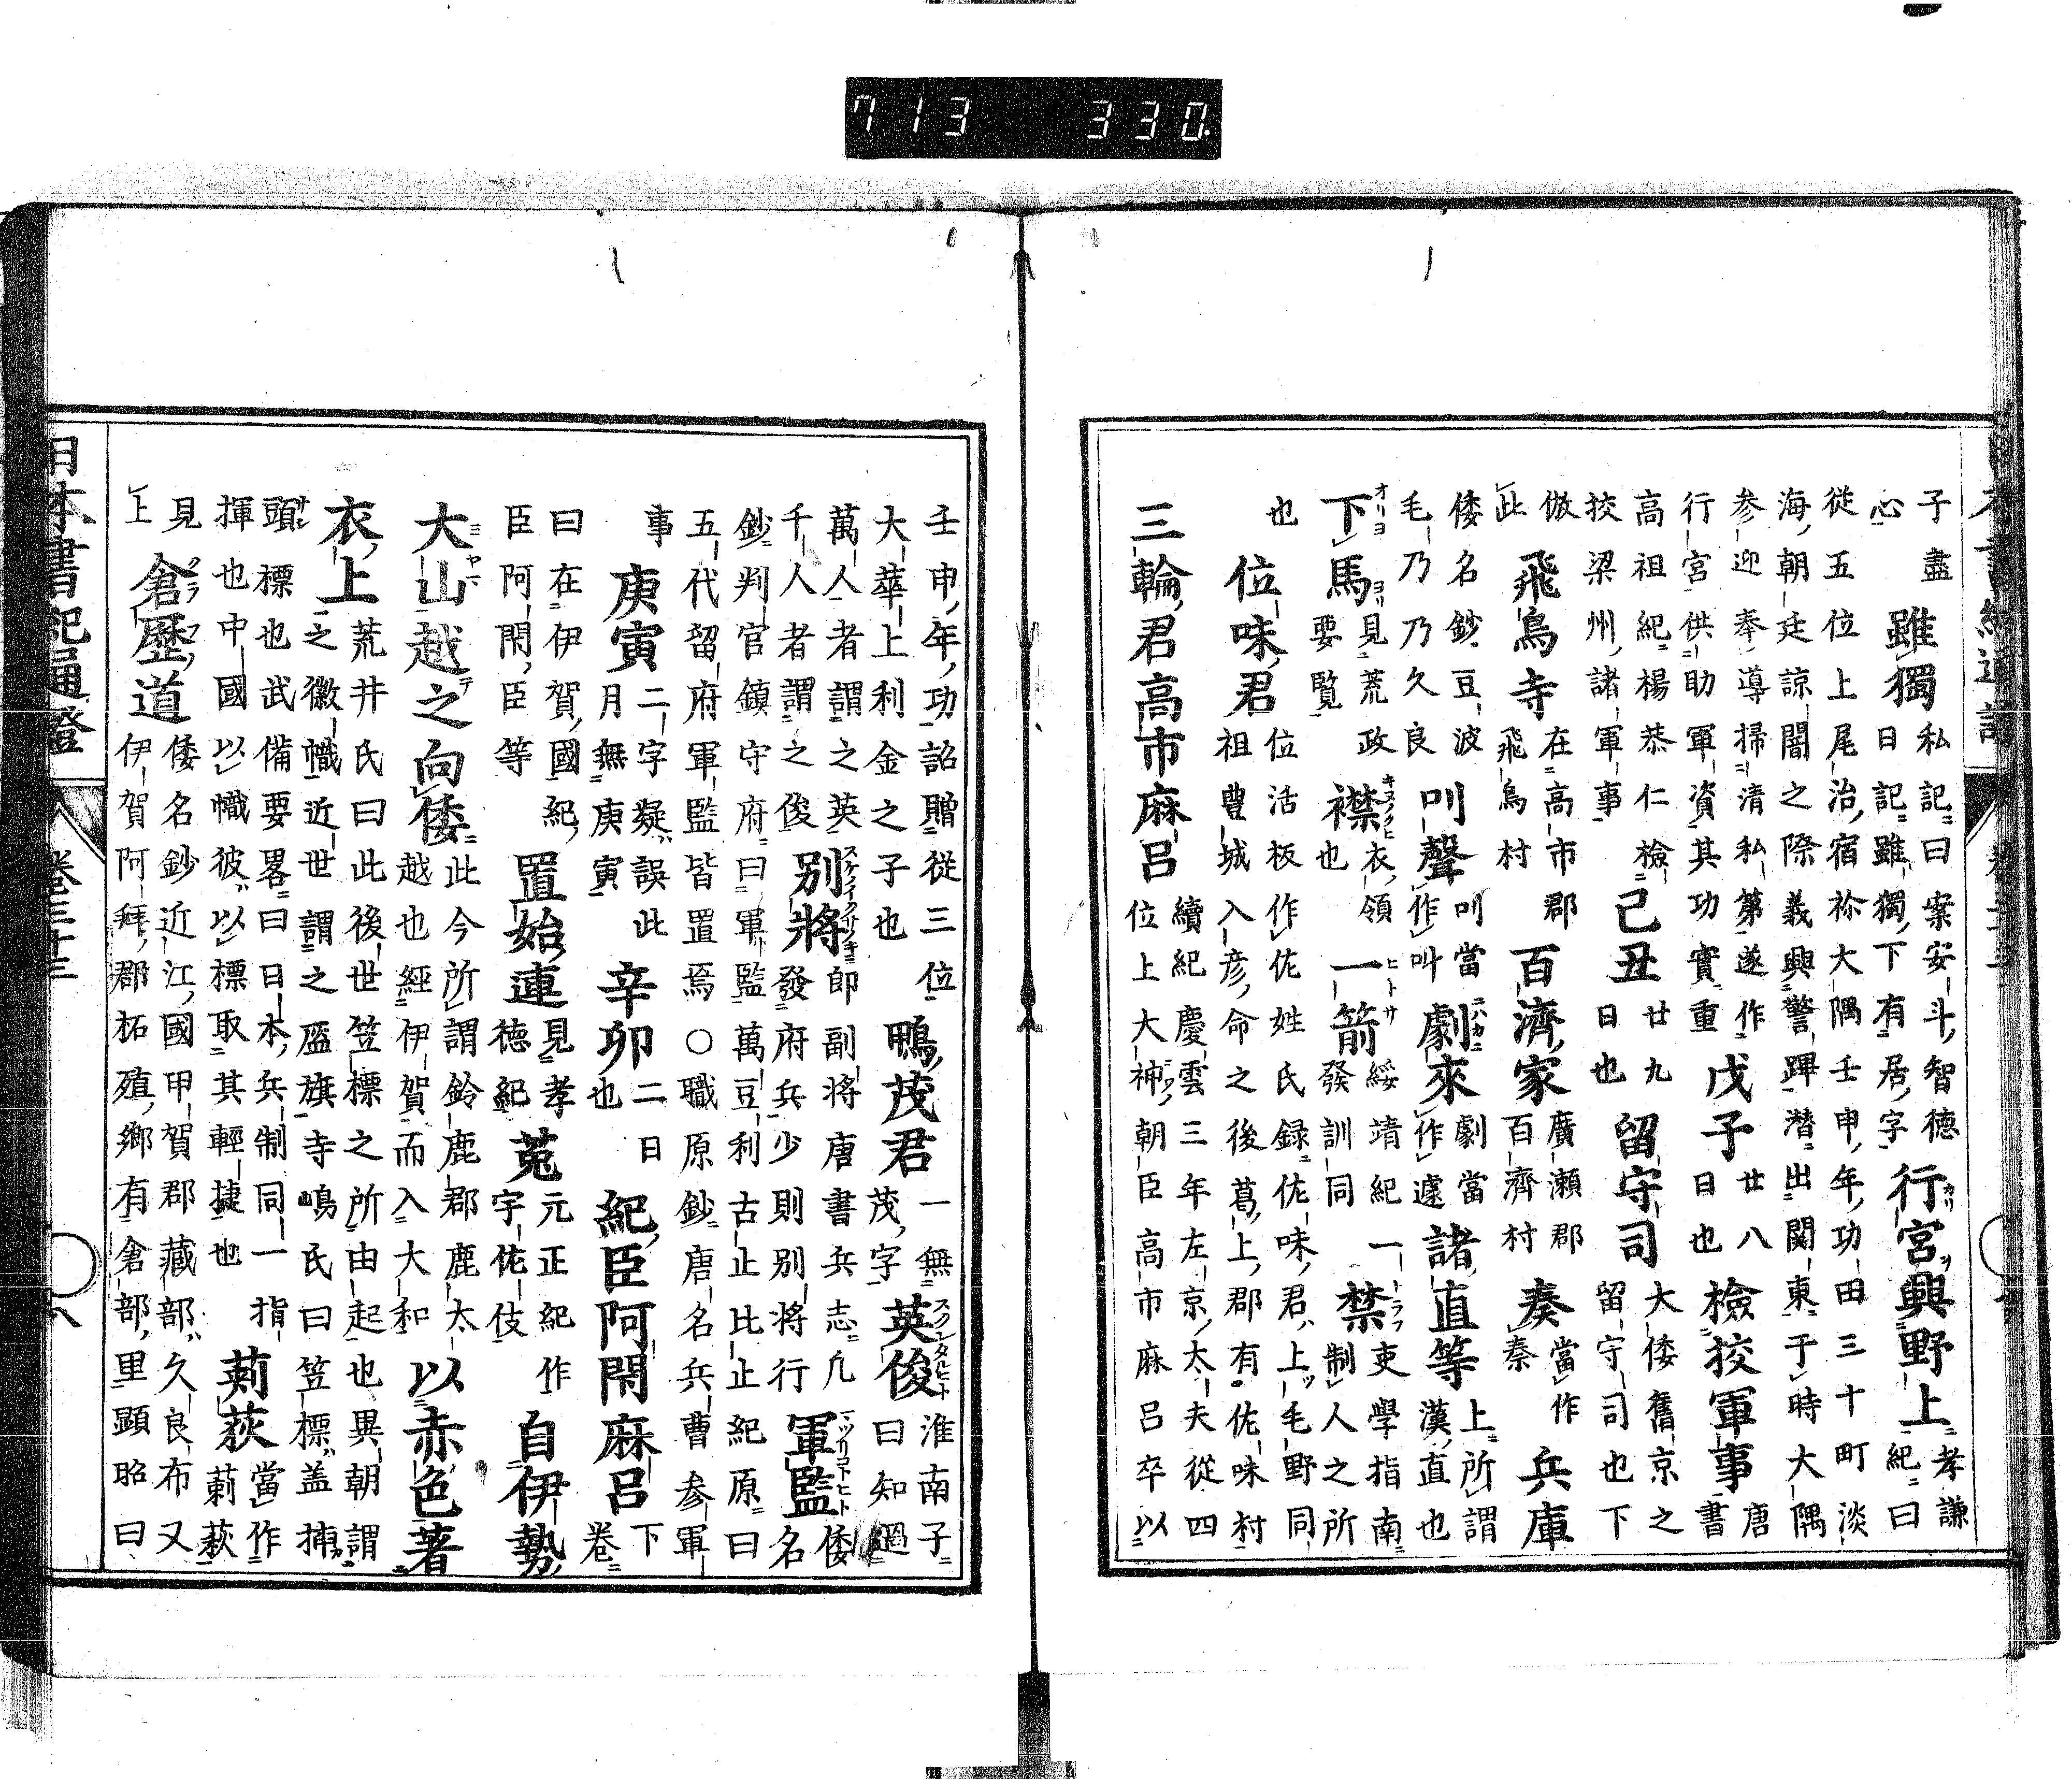 子盡心 雖獨 私記曰案安斗智德日記雖獨下有居字 行宮興野上 孝謙紀曰
從五位上尾治宿祢大隅壬申年功田三十町淡
海朝廷諒闇之際義興警蹕潜出関東于時大隅
参迎奉導掃清私第遂作行宮供助軍資其功實重 戊子 廿八日也 檢挍軍事 唐書
高祖紀楊恭仁檢挍梁州諸軍事 己丑 廿九日也 留守司 大倭舊京之留守司也下
倣此 飛鳥寺 在高市郡飛鳥村 百濟家 廣瀬郡百濟村 奏 當作秦 兵庫
倭名鈔豆波毛乃乃久良 叫聲 叫當作叫 劇來 劇當作遽 諸直等 上所謂漢直也
下馬 見荒政要覧 襟 衣領也 一箭 綏靖紀一發訓同 禁 吏學指南制人之所
也 位味君 位活板作佐姓氏録佐味君上毛野同祖豊城入彦命之後葛上郡有佐味村
三輪君高市麻呂 續紀慶雲三年左京大夫從四位上大神朝臣高市麻呂卒以
壬申年功詔贈從三位大華上利金之子也 鴨茂君 一無茂字 英俊 淮南子曰知過
萬人者謂之英千人者謂之俊 別將 即副將唐書兵志凡發府兵少則別將行 軍監 倭名
鈔判官鎮守府曰軍監萬豆利古止比止紀原曰
五代留府軍監皆置焉○職原鈔唐名兵曹参軍
事 庚寅 二字疑誤此月無庚寅 辛卯 二日也 紀臣阿閇麻呂 下卷
曰在伊賀國紀臣阿閇臣等 置始連 見孝德紀 菟 元正紀作宇佐伎 自伊勢
大山越之向倭 此今所謂鈴鹿郡鹿太越也經伊賀而入大和 以赤色著
衣上 荒井氏曰此後世笠標之所由起也異朝謂之徽幟近世謂之盔旗寺嶋氏曰笠標盖捕
頭標也武備要畧曰日本兵制同一指揮也中國以幟彼以標取其輕捷也 莿萩 當作莿萩
見上 倉歴道 倭名鈔近江國甲賀郡藏部久良布又伊賀阿拜郡柘殖郷有倉部里顕昭曰
日本書紀通證 卷三十三 八
713 330